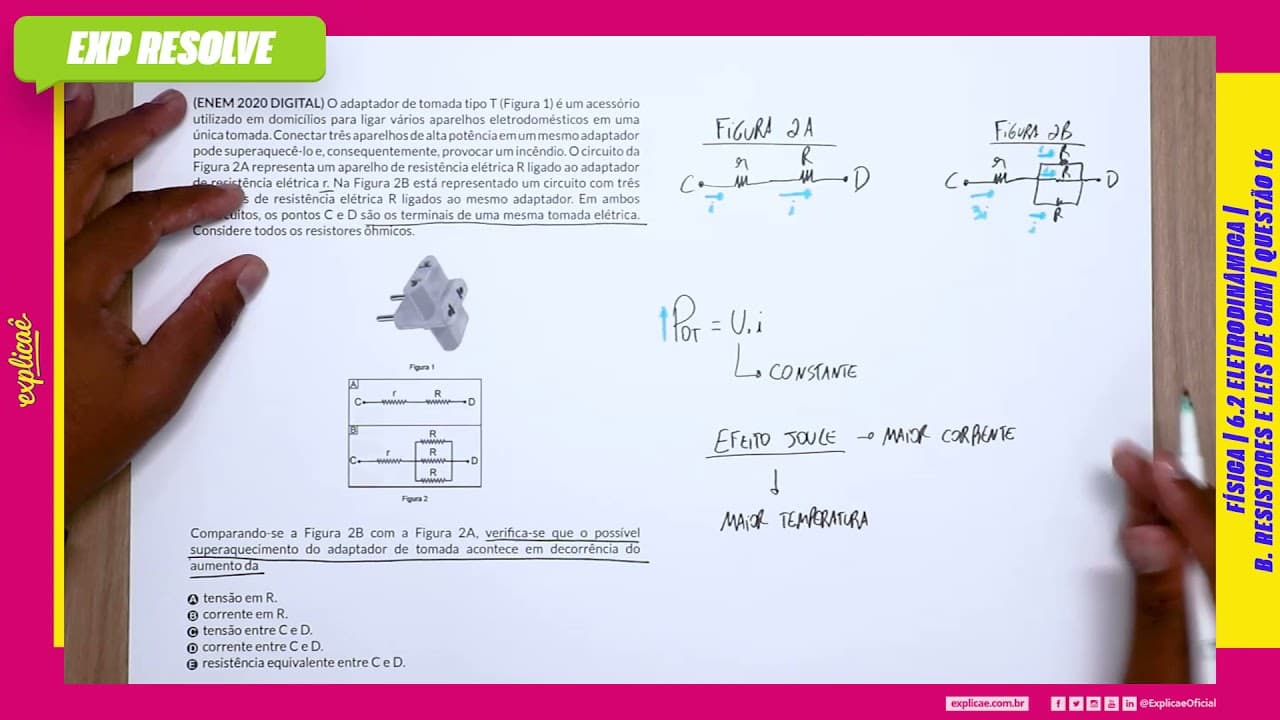 EXP RESOLVE
(ENEM 2020 DIGITAL) O adaptador de tomada tipo T (Figura 1) é um acessório
utilizado em domicílios para ligar vários aparelhos eletrodomésticos em uma
única tomada. Conectar três aparelhos de alta potência em um mesmo adaptador
pode superaquecê-lo e, consequentemente, provocar um incêndio. O circuito da
Figura 2A representa um aparelho de resistência elétrica R ligado ao adaptador
de resistência elétrica r. Na Figura 2B está representado um circuito com três
de resistência elétrica R ligados ao mesmo adaptador. Em ambos
os pontos C e D são os terminais de uma mesma tomada elétrica.
Considere todos os resistores ôhmicos.
Figura 1
A
C r R D
B
R
C r R D
R
Figura 2
Comparando-se a Figura 2B com a Figura 2A, verifica-se que o possível
superaquecimento do adaptador de tomada acontece em decorrência do
aumento da
A tensão em R.
B corrente em R.
C tensão entre C e D.
D corrente entre C e D.
E resistência equivalente entre C e D.
FIGURA 2A
r R
C D
i i
FIGURA 2B
i R
r i R
C D
3i i R
POT = U.i
CONSTANTE
EFEITO JOULE → MAIOR CORRENTE
MAIOR TEMPERATURA
explicaê
FÍSICA | 6.2 ELETRODINÂMICA |
B. RESISTORES E LEIS DE OHM | QUESTÃO 16
explicae.com.br
@ExplicaeOficial